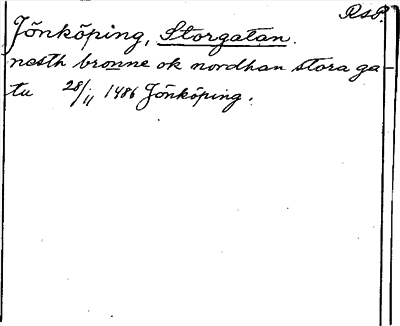 RsP.
Jönköping, Storgatan.
nesth bronne ok nordhan stora ga-
tu 28/11 1486 Jönköping.